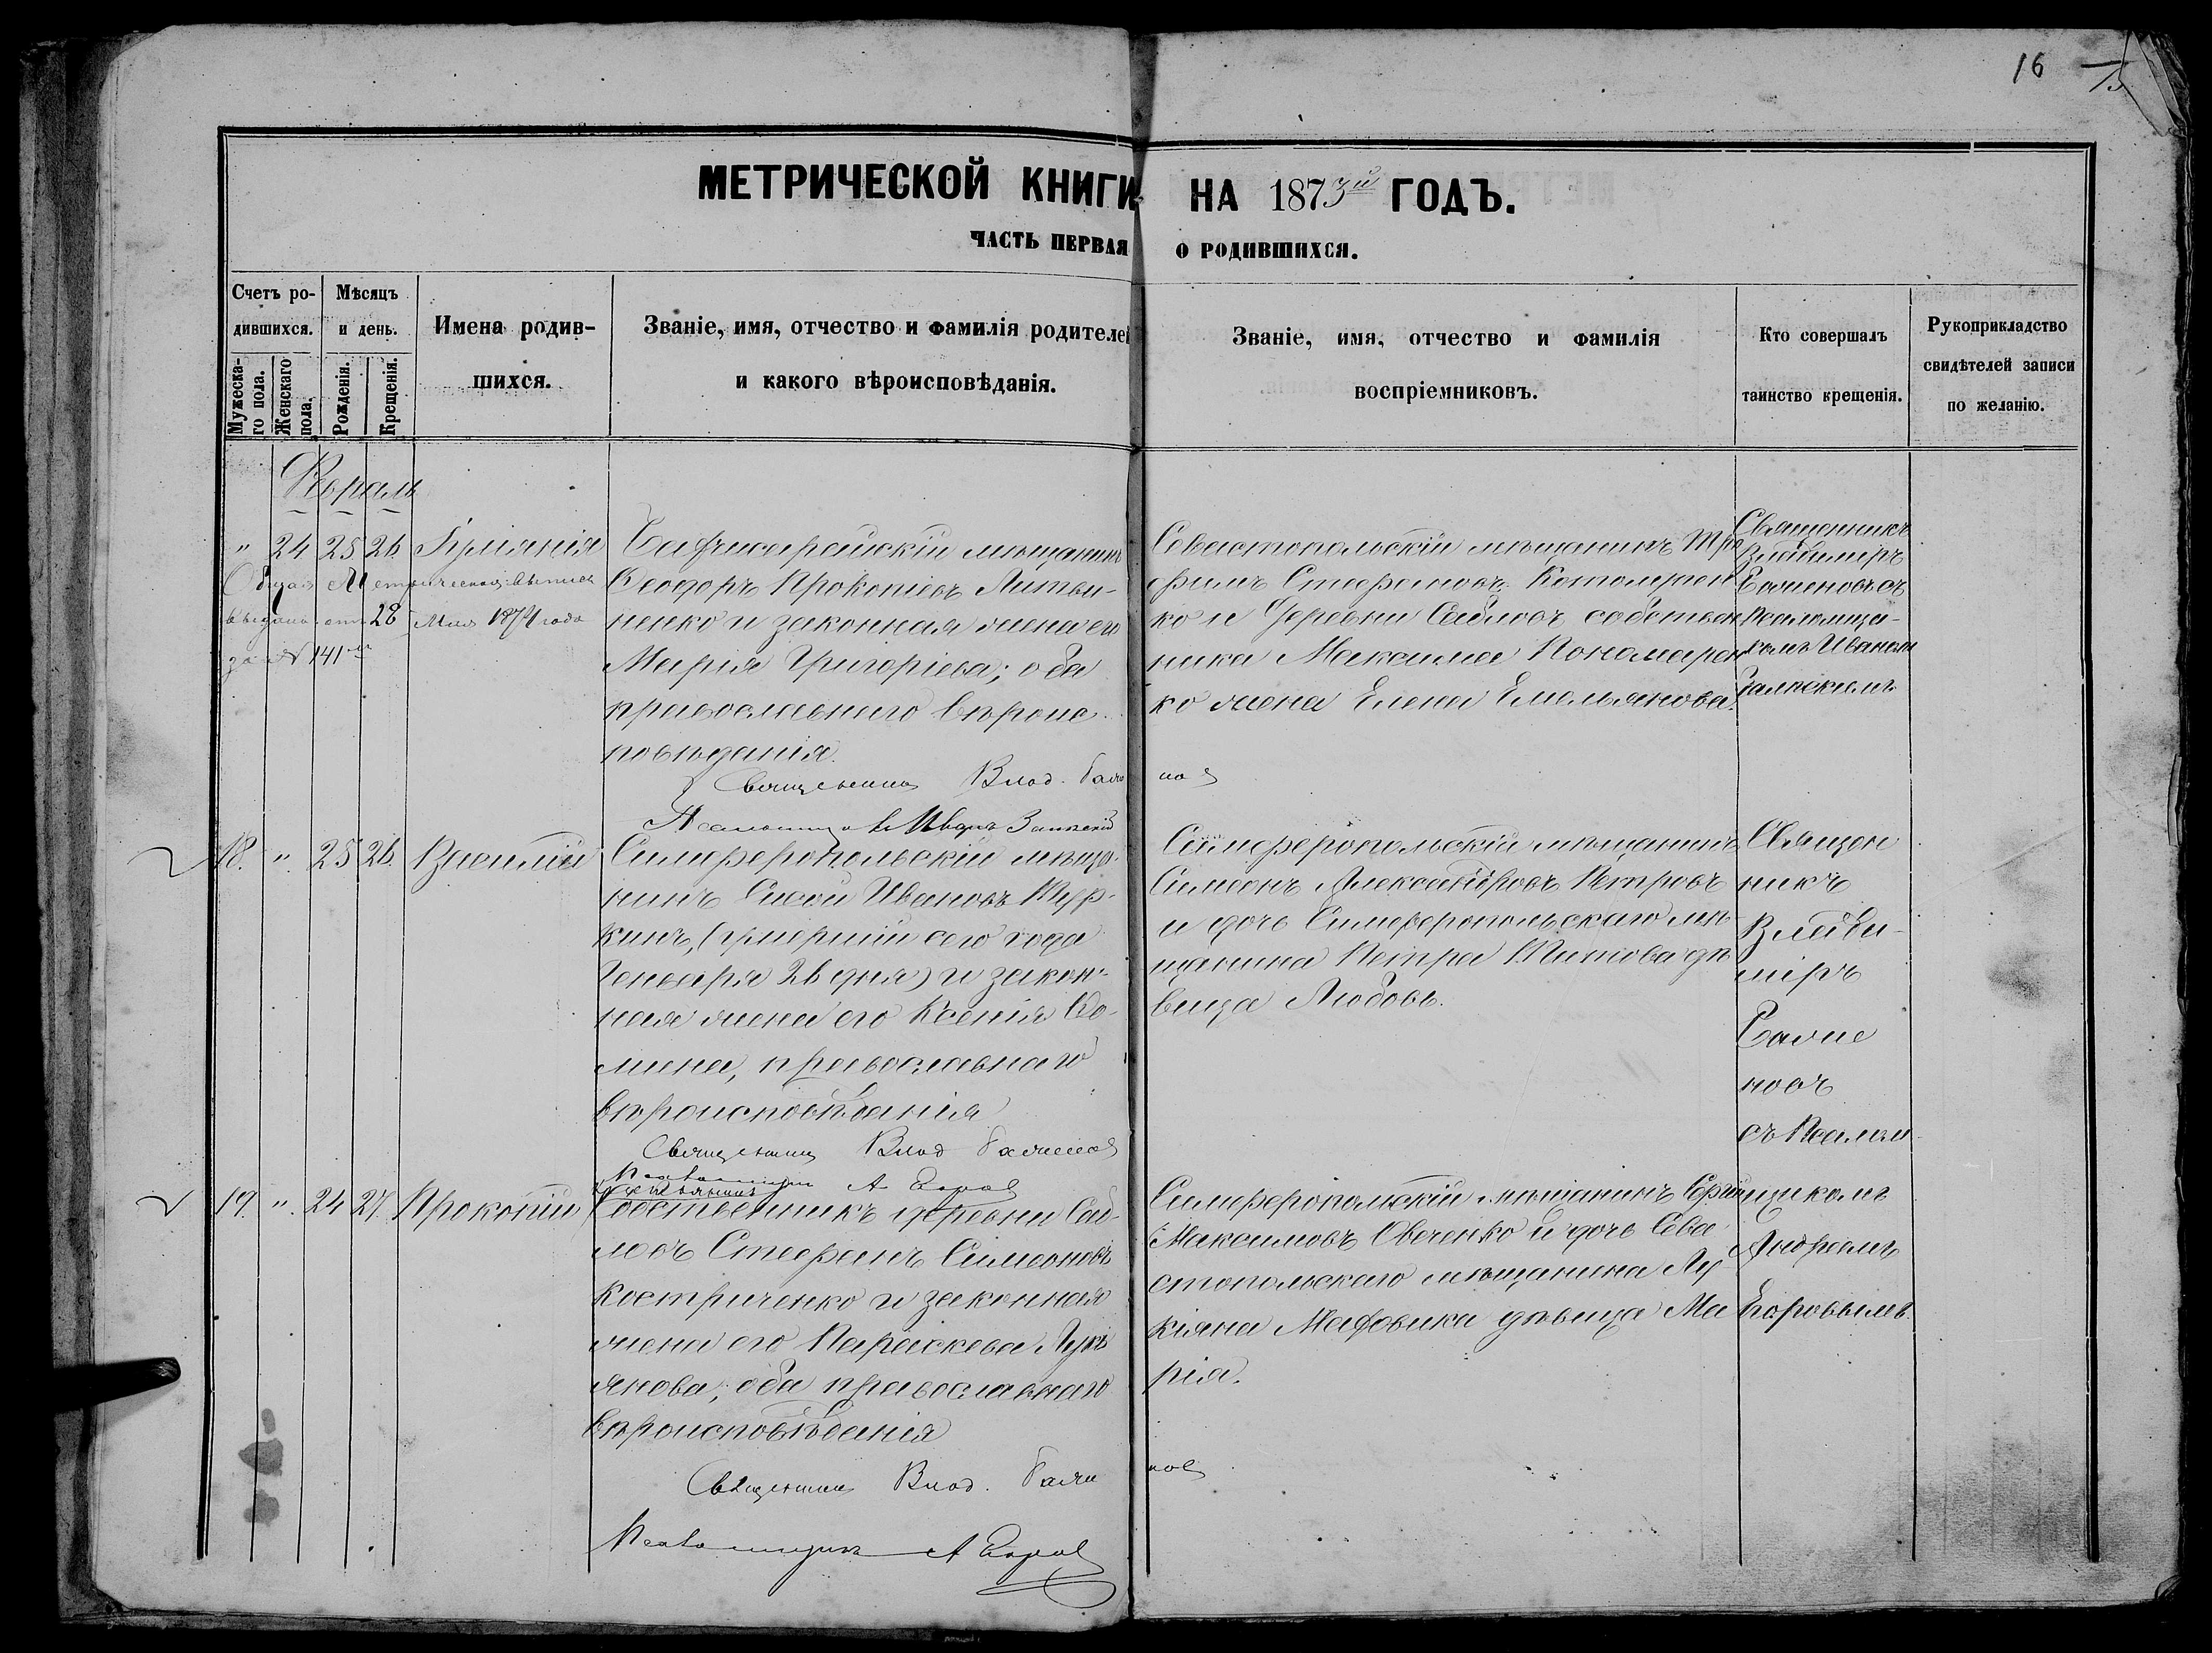 16
МЕТРИЧЕСКОЙ КНИГИ НА 1873й ГОДЪ.
ЧАСТЬ ПЕРВАЯ О РОДИВШИХСЯ.
Счетъ ро-
дившихся.
Мужеска-
го пола.
Женскаго
пола.
Мѣсяцъ
и день.
Рожденія.
Крещенія.
Имена родив-
шихся.
Званіе, имя, отчество и фамилія родителей
и какого вѣроисповѣданія.
Званіе, имя, отчество и фамилія
воспріемниковъ.
Кто совершалъ
таинство крещенія.
Рукоприкладство
свидѣтелей записи
по желанію.
Февраль
" 24 25 26
выдана 28 Мая 1874 года
за № 141
Бахчисарайскій мѣщанинъ
Ѳеодоръ Прокопіевъ Литви-
ненко и законная жена его
Марія Григоріева; оба
православнаго вѣроис-
повѣданія.
Священникъ Влад. Баже нов
Псаломщикъ Иванъ
Севастопольскій мѣщанинъ Тро
фимъ Стефановъ
ко и деревни Сабловъ собствен
ника Максима Пономарен
ко жена Елена Емельянова.
Священникъ
Владимиръ
Баженовъ съ
Псаломщи-
комъ Иваномъ
18. " 25 26. Василій
Симферопольскій мѣща-
нинъ Сисой Ивановъ
кинъ, (умершій сего года
Генваря 26 дня) и закон-
ная жена его Ксенія Ѳо-
мина, православнаго
вѣроисповѣданія
Священникъ Влад Баженов
Псаломщик А Егоров
Симферопольскій мѣщанинъ
Симеонъ Александровъ Петровъ
и дочь Симферопольскаго мѣ-
щанина Петра Титова дѣ-
вица Любовь.
Священ
никъ
Влади-
міръ
Баже
новъ
съ Псалом-
щикомъ
Андреемъ
Егоровымъ.
19. " 24 27. Прокопій
Собственникъ деревни Саб-
ловъ Стефанъ Симеоновъ
Костриченко и законная
жена его Параскева Лукі
янова; оба православнаго
вѣроисповѣданія
Священник Влад. Баже нов
Псаломщикъ А Егоров
Симферопольскій мѣщанинъ Сергій
Максимовъ Овченко и дочь Сева-
стопольскаго мѣщанина Лу-
кіяна дѣвица Ма
рія.